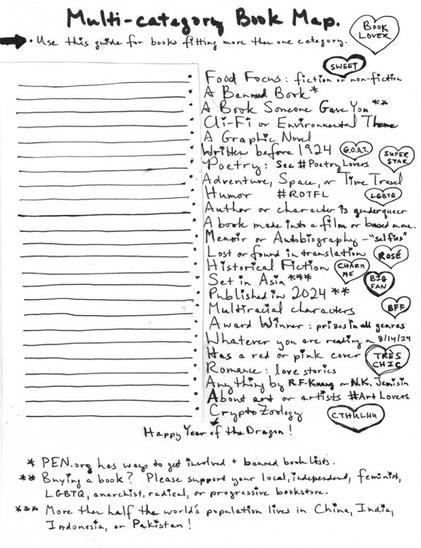 Multi-category Book Map.
• Use this guide for books fitting more than one category.
BOOK LOVER
SWEET
Food Focus: fiction or non-fiction
A Banned Book*
A Book Someone Gave You **
Cli-Fi or Environmental Theme
A Graphic Novel
Written before 1924 G.O.A.T.
Poetry: See #PoetryLovers SUPER STAR
Adventure, Space, or Time Travel
Humor #ROTFL LGBTQ
Author or character is genderqueer
A book made into a film or based on one.
Memoir or Autobiography - "selfies"
Lost or found in translation ROSÉ
Historical Fiction CHARM ME
Set in Asia *** BIG FAN
Published in 2024 **
Multiracial characters BFF
Award Winner: prizes in all genres
Whatever you are reading on 8/14/24
Has a red or pink cover TRÈS CHIC
Romance: love stories
Anything by R.F. Kuang or N.K. Jemisin
About art or artists #Art Lovers
CryptoZoology CTHULHU
Happy Year of the Dragon!
* PEN.org has ways to get involved + banned book lists.
** Buying a book? Please support your local, independent, feminist,
LGBTQ, anarchist, radical, or progressive bookstore.
*** More than half the world's population lives in China, India,
Indonesia, or Pakistan!